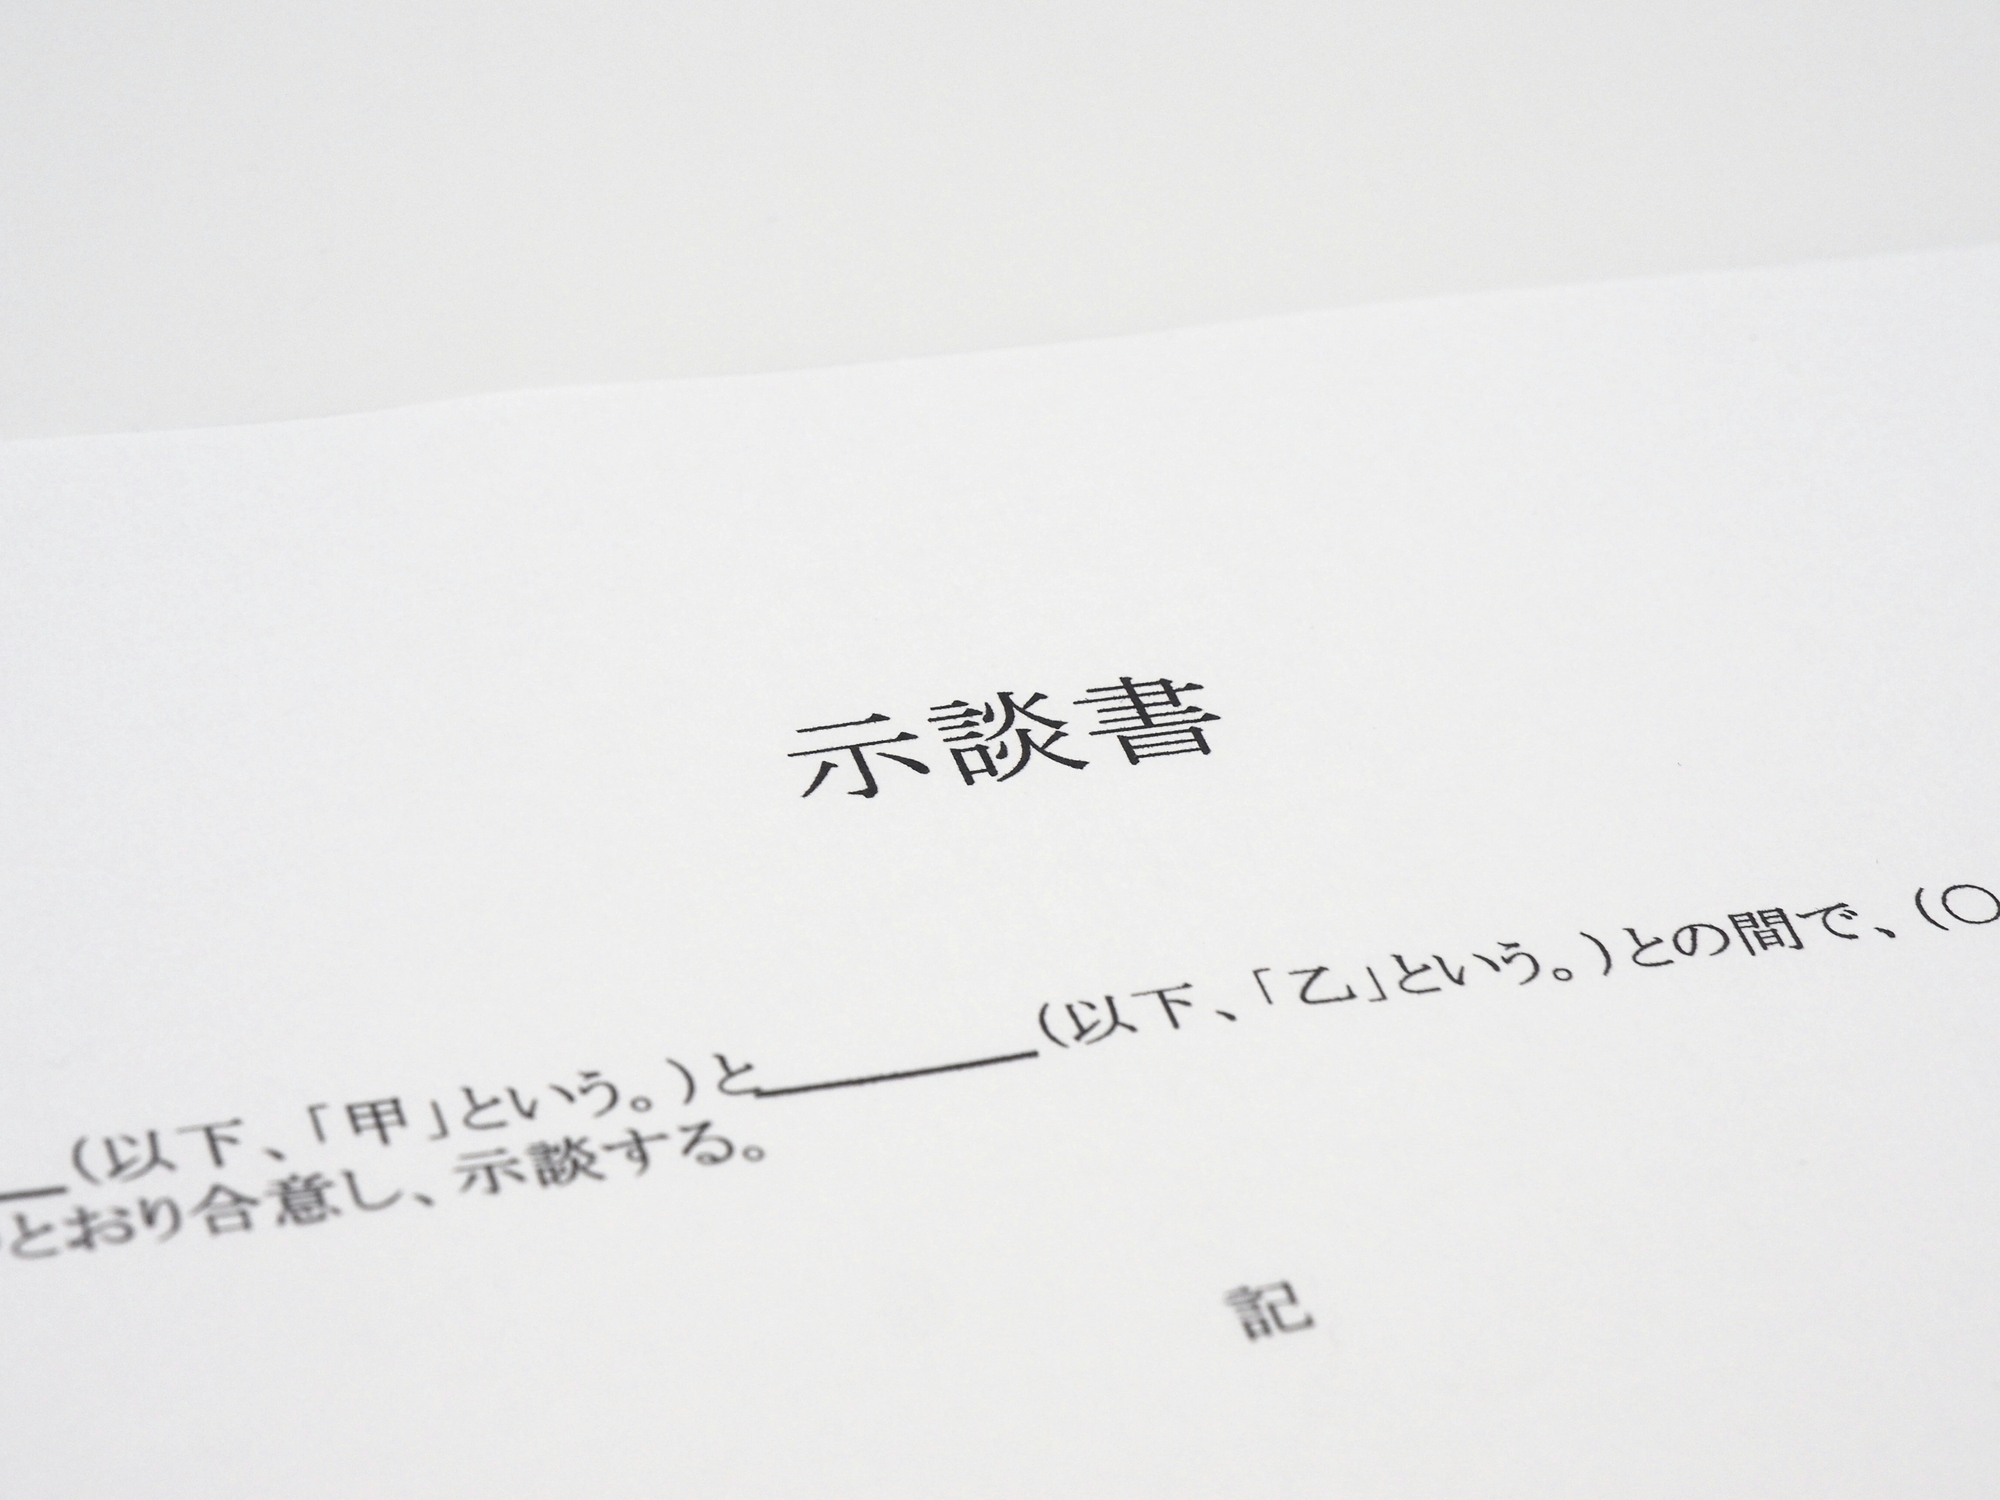 示談書
＿＿(以下、「甲」という。)と＿＿＿＿＿(以下、「乙」という。)との間で、(○
とおり合意し、示談する。
記